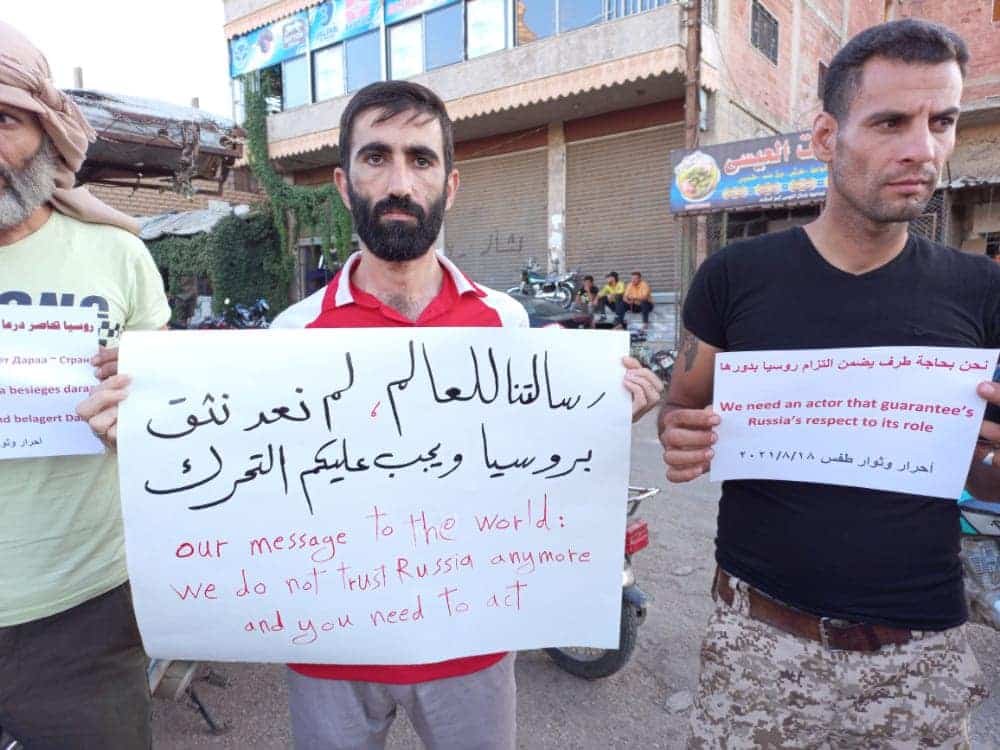 روسيا تحاصر درعا
ет Дараа - Стран
a besieges dara
nd belagert Da
احرار وثوار
رسالتنا للعالم، لم نعد نثق
بروسيا ويجب عليكم التحرك
our message to the world:
we do not trust Russia anymore
and you need to act
نحن بحاجة طرف يضمن التزام روسيا بدورها
We need an actor that guarantee's
Russia's respect to its role
احرار وثوار طفس ٢٠٢١/٨/١٨
ت العيسى